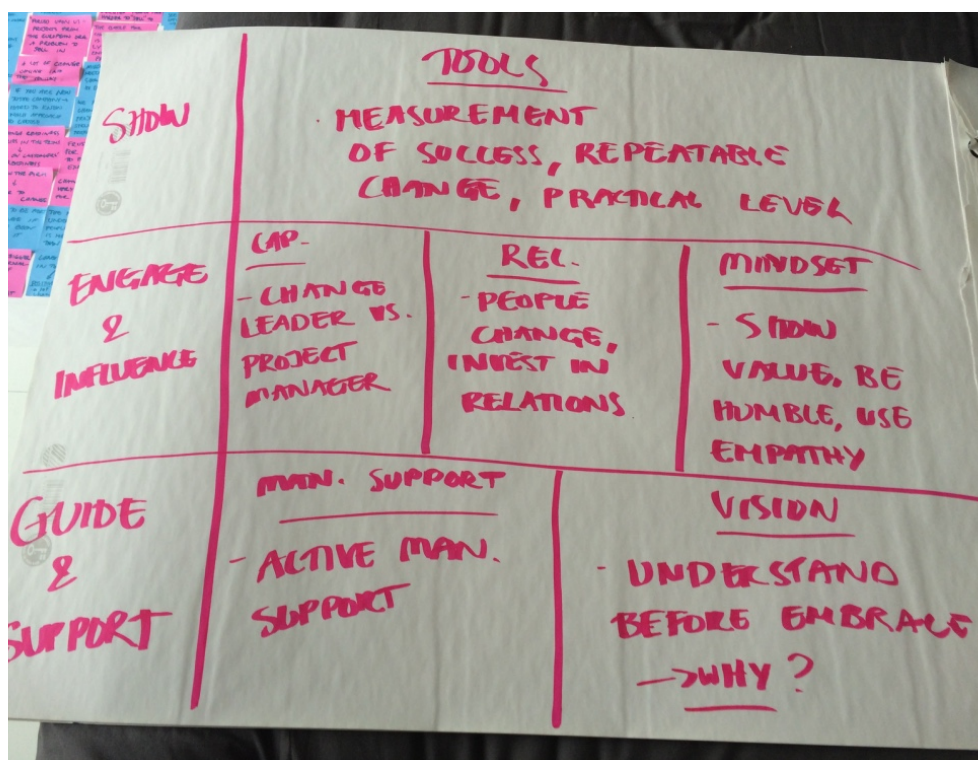 SHOW
TOOLS
- MEASUREMENT
OF SUCCESS, REPEATABLE
CHANGE, PRACTICAL LEVEL
ENGAGE
&
INFLUENCE
CAP.
- CHANGE
LEADER VS.
PROJECT
MANAGER
REL.
- PEOPLE
CHANGE,
INVEST IN
RELATIONS
MINDSET
- SHOW
VALUE, BE
HUMBLE, USE
EMPATHY
GUIDE
&
SUPPORT
MAN. SUPPORT
- ACTIVE MAN.
SUPPORT
VISION
- UNDERSTAND
BEFORE EMBRACE
-> WHY?
A LOT OF CHANGE